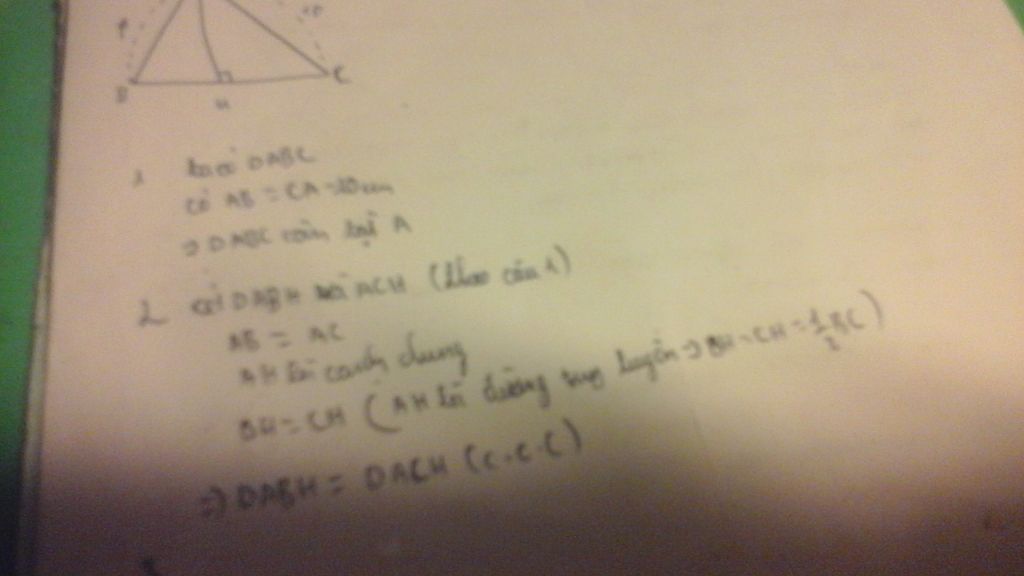 B
H
C
10
1 ta có DABC
có AB = CA = 10cm
=> DABC cân tại A
2 xét DABH và ACH (theo câu 1)
AB = AC
AH là cạnh chung
BH = CH (AH là đường trung tuyến => BH = CH = 1/2 BC)
=> DABH = DACH (c.c.c)